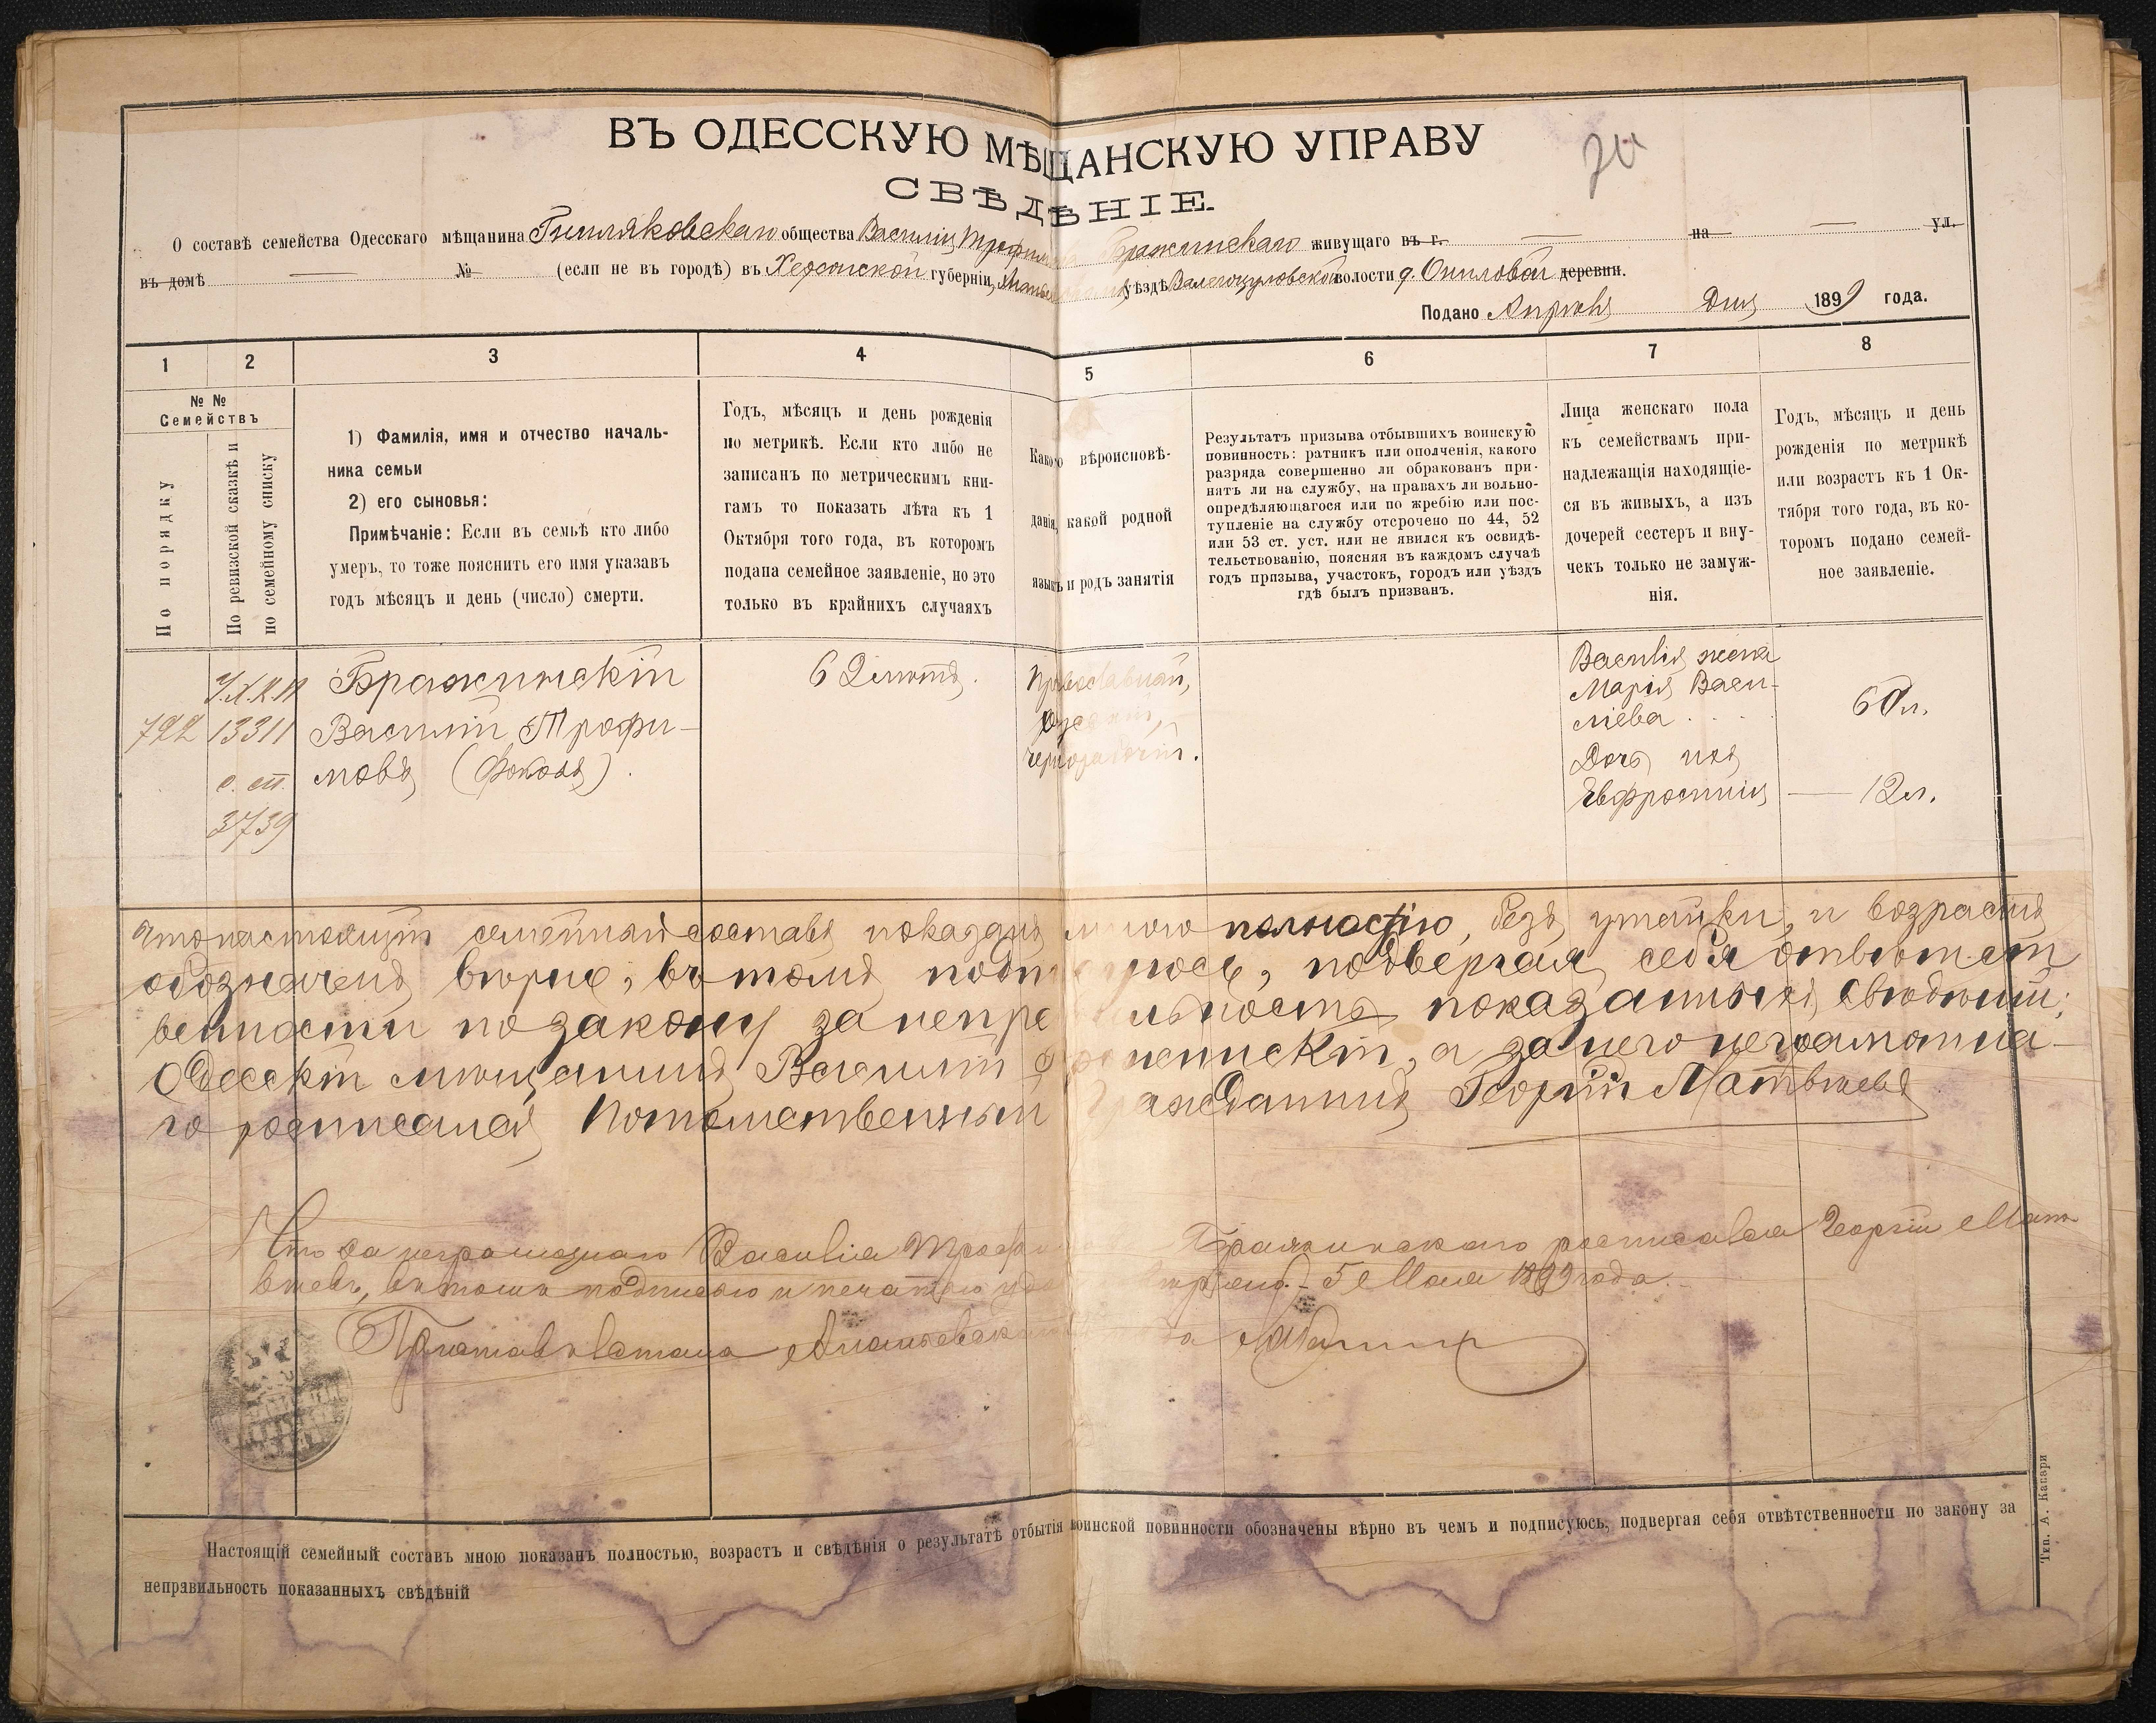 ВЪ ОДЕССКУЮ МѢЩАНСКУЮ УПРАВУ
СВѢДѢНІЕ.
О составѣ семейства Одесскаго мѣщанина Гниляковскаго общества Василія Трофимова Бражинскаго живущаго въ г. на ул.
въ домѣ № (если не въ городѣ) въ Херсонской губерніи, Ананьевскомъ уѣздѣ Валегоцуловской волости д. деревни.
Подано Апрѣля Дня 1899 года.
1 2 3 4 5 6 7 8
№ №
Семействъ
По порядку
По ревизской сказкѣ и
по семейному списку
1) Фамилія, имя и отчество началь-
ника семьи
2) его сыновья:
Примѣчаніе: Если въ семьѣ кто либо
умеръ, то тоже пояснить его имя указавъ
годъ мѣсяцъ и день (число) смерти.
Годъ, мѣсяцъ и день рожденія
по метрикѣ. Если кто либо не
записанъ по метрическимъ кни-
гамъ то показать лѣта къ 1
Октября того года, въ которомъ
подана семейное заявленіе, но это
только въ крайнихъ случаяхъ
Какого вѣроисповѣ-
данія, какой родной
языкъ и родъ занятія
Результатъ призыва отбывшихъ воинскую
повинность: ратникъ или ополченія, какого
разряда совершенно ли обракованъ при-
нятъ ли на службу, на правахъ ли вольно-
опредѣляющагося или по жребію или пос-
тупленіе на службу отсрочено по 44, 52
или 53 ст. уст. или не явился къ освидѣ-
тельствованію, поясняя въ каждомъ случаѣ
годъ призыва, участокъ, городъ или уѣздъ
гдѣ былъ призванъ.
Лица женскаго пола
къ семействамъ при-
надлежащія находящіе-
ся въ живыхъ, а изъ
дочерей сестеръ и вну-
чекъ только не замуж-
нія.
Годъ, мѣсяцъ и день
рожденія по метрикѣ
или возрастъ къ 1 Ок-
тября того года, въ ко-
торомъ подано семей-
ное заявленіе.
722
13311
с. сп.
3739
Бражинскій
Василій Трофи-
мовъ
62 лѣтъ.
Православный,
Русскій,
чернорабочій.
Василія жена
Марія Васи-
ліева
Дочь
Евфросинія
60 л.
12 л.
Что настоящій семейный составъ показанъ мною полностію, безъ утайки, и возрастъ
обозначенъ вѣрно, въ томъ подписуюсь, подвергая себя отвѣтст
венности по закону за неправильность показанныхъ свѣдѣній;
Одесскій мѣщанинъ Василій а за него неграмотна-
го росписался Потомственный Гражданинъ Георгій Матвѣевъ
Что за неграмотнаго Василія Трофимова Бражинскаго росписался Георгій Мат
вѣевъ, въ томъ подписью и печатью удостовѣряю. 5 Мая 1899 года.
Приставъ стана Ананьевскаго уѣзда
Настоящій семейный составъ мною показанъ полностью, возрастъ и свѣдѣнія о результатѣ отбытія воинской повинности обозначены вѣрно въ чемъ и подписуюсь, подвергая себя отвѣтственности по закону за
неправильность показанныхъ свѣдѣній
Тип. А. Какари